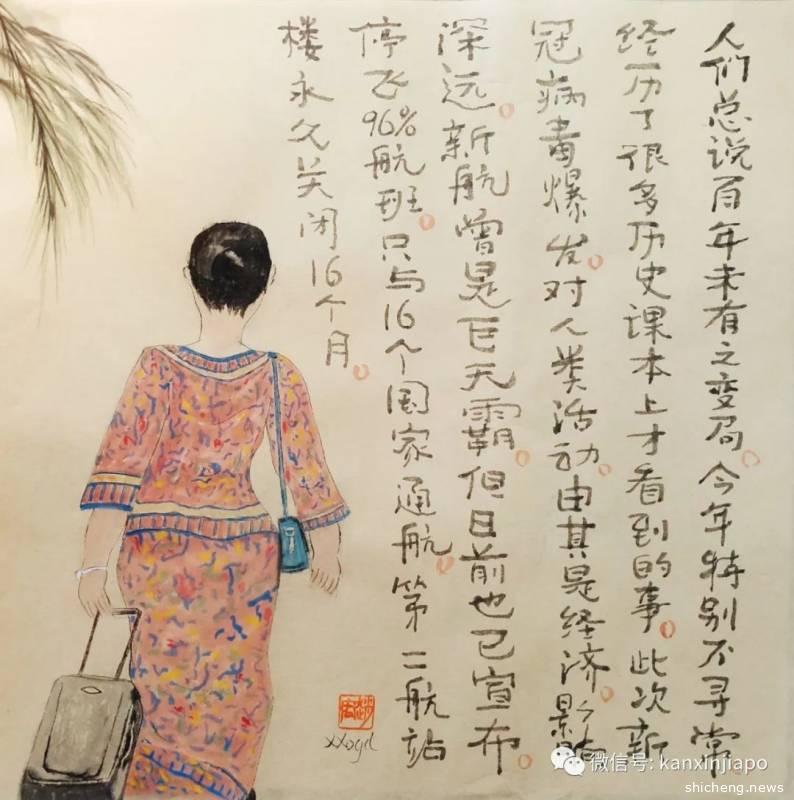 人们总说百年未有之变局。今年特别不寻常
经历了很多历史课本上才看到的事。此次新
冠病毒爆发。对人类活动。由其是经济。
深远。新航曾是巨无霸。但日前也已宣布。
停飞96%航班。只与16个国家通航。第二航站
楼永久关闭16个月。
微信号: kanxinjiapo
shicheng.news